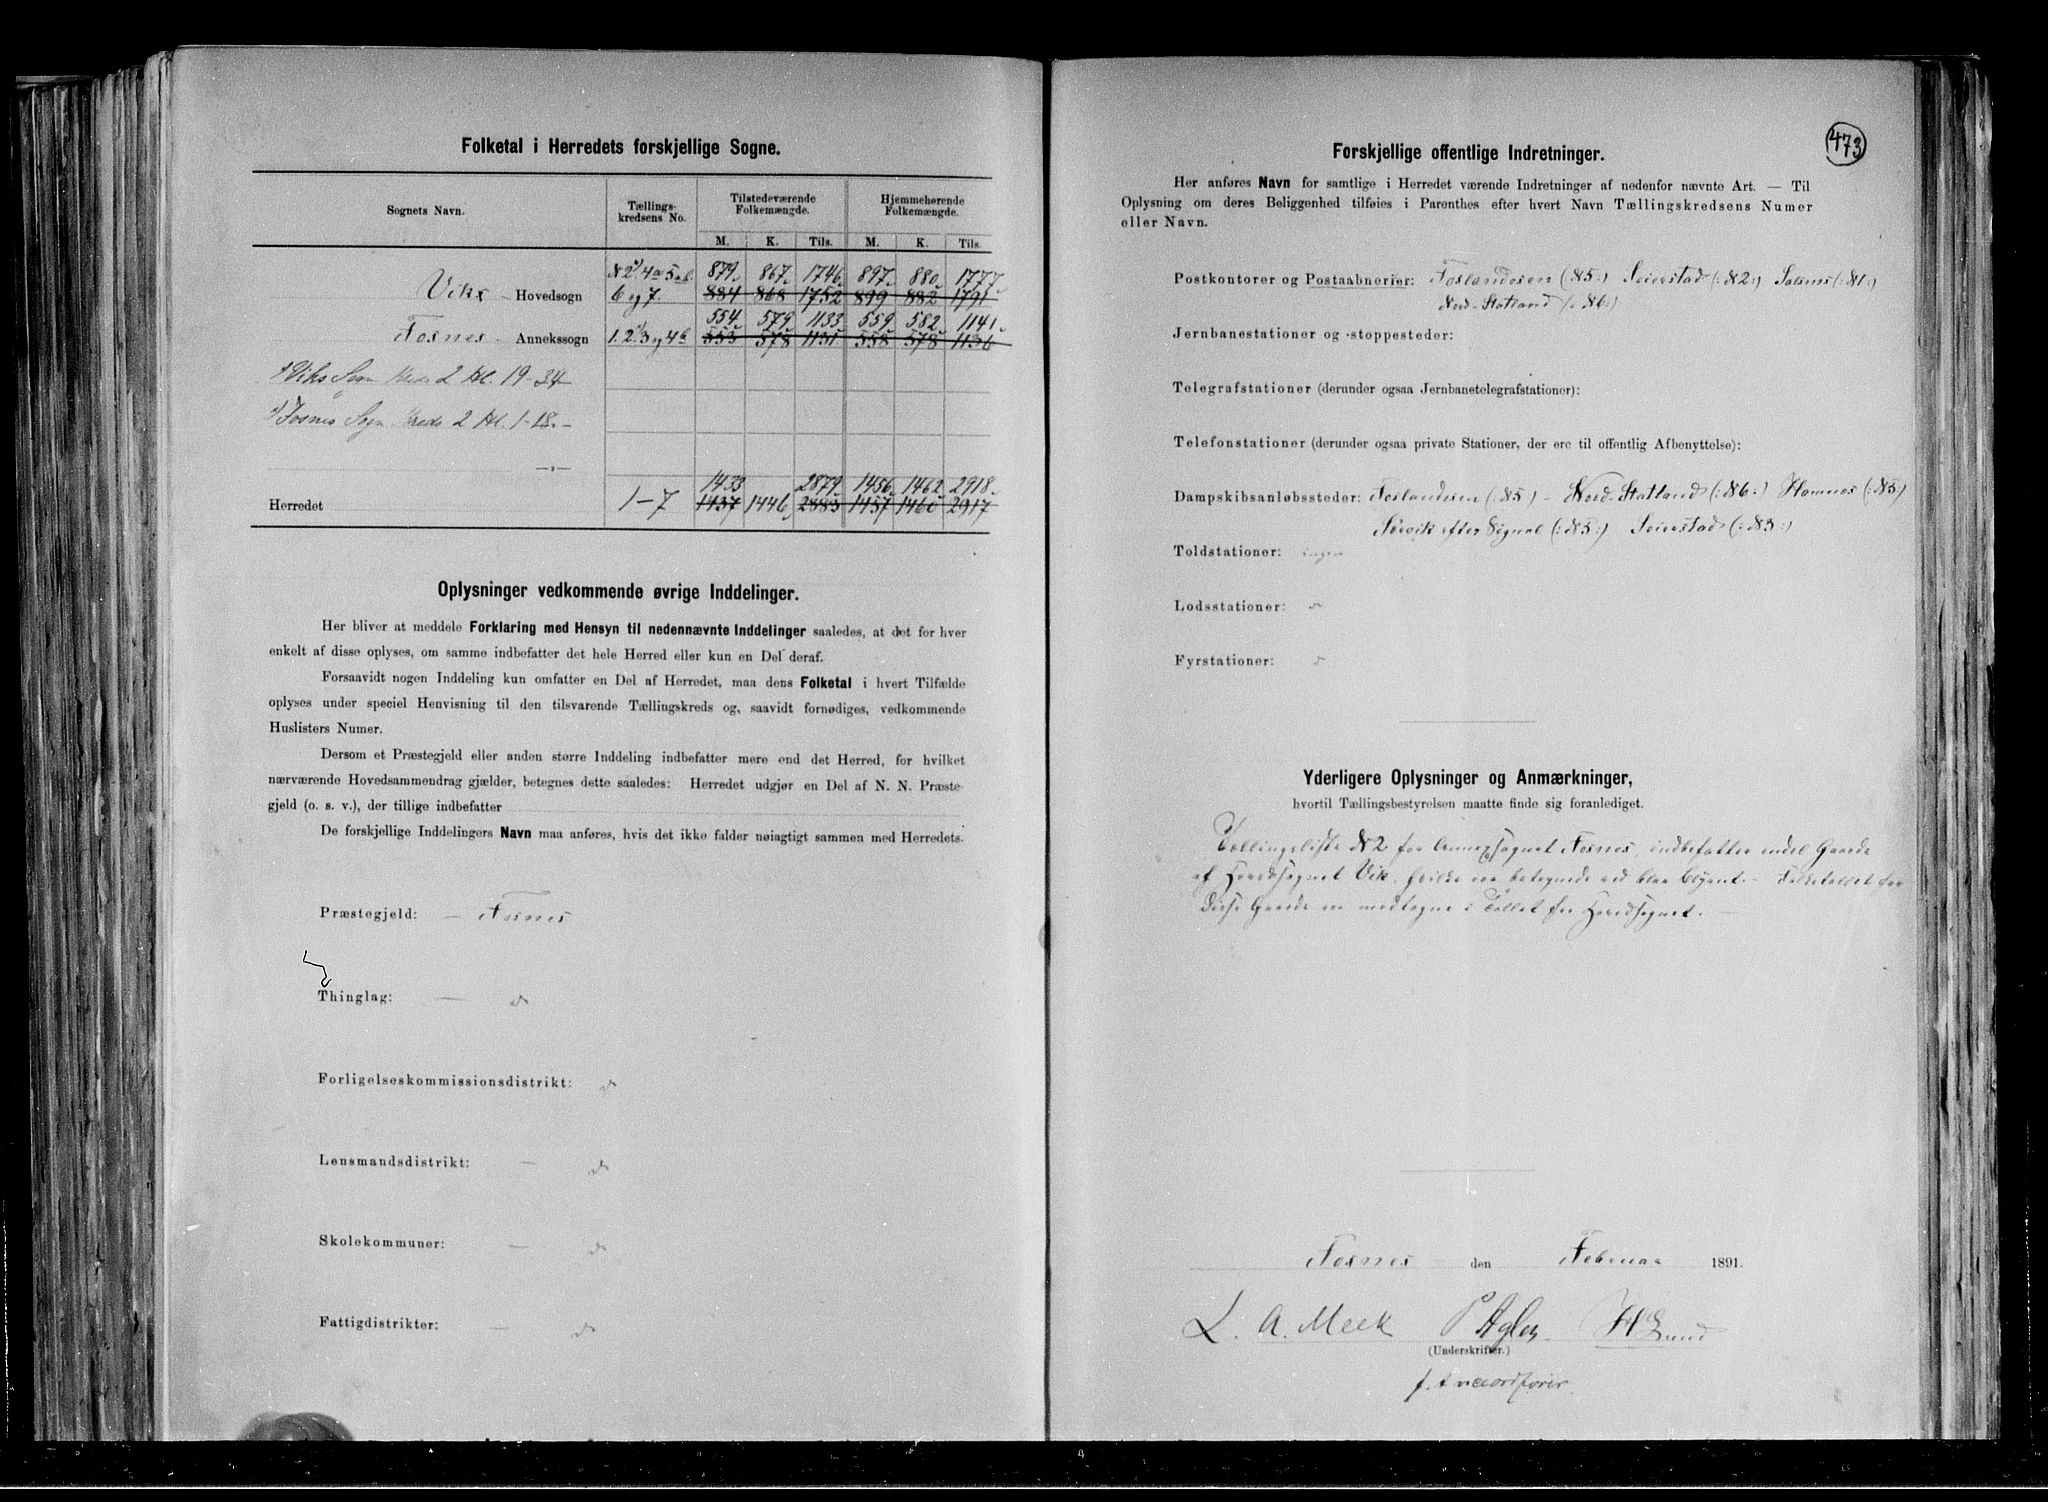 Folketal i Herredets forskjellige Sogne.
Sognets Navn.
Tællings-
kredsens No.
Tilstedeværende
Folkemængde.
Hjemmehørende
Folkemængde.
M. K. Tils. M. K. Tils.
879 867 1746 897 880 1777
Vik Hovedsogn 6 og 7. 884 868 1752 899 882 1791
554 579 1133 559 582 1141
Fosnes Annekssogn 1. 2. 3 og 4b 553 578 1131 558 578 1136
Viks Sogn Kreds 2 Hl. 19-34
Fosnes Sogn Kreds 2 Hl. 1-18
1433 2879 1456 1462 2918
Herredet 1-7 1437 1446 2883 1457 1460 2917
Oplysninger vedkommende øvrige Inddelinger.
Her bliver at meddele Forklaring med Hensyn til nedennævnte Inddelinger saaledes, at det for hver
enkelt af disse oplyses, om samme indbefatter det hele Herred eller kun en Del deraf.
Forsaavidt nogen Inddeling kun omfatter en Del af Herredet, maa dens Folketal i hvert Tilfælde
oplyses under speciel Henvisning til den tilsvarende Tællingskreds og, saavidt fornødiges, vedkommende
Huslisters Numer.
Dersom et Præstegjeld eller anden større Inddeling indbefatter mere end det Herred, for hvilket
nærværende Hovedsammendrag gjælder, betegnes dette saaledes: Herredet udgjør en Del af N. N. Præste-
gjeld (o. s. v.), der tillige indbefatter
De forskjellige Inddelingers Navn maa anføres, hvis det ikke falder nøiagtigt sammen med Herredets.
Præstegjeld: — Fosnes
Thinglag: —
Forligelseskommissionsdistrikt:
Lensmandsdistrikt: —
Skolekommuner: —
Fattigdistrikter: —
473
Forskjellige offentlige Indretninger.
Her anføres Navn for samtlige i Herredet værende Indretninger af nedenfor nævnte Art. — Til
Oplysning om deres Beliggenhed tilføies i Parenthes efter hvert Navn Tællingskredsens Numer
eller Navn.
Postkontorer og Postaabnerier: Foslandosen (:N5:) Seierstad (:N2:) Salsnes (:N1:)
Nord-Statland (:N6:)
Jernbanestationer og -stoppesteder:
Telegrafstationer (derunder ogsaa Jernbanetelegrafstationer):
Telefonstationer (derunder ogsaa private Stationer, der ere til offentlig Afbenyttelse):
Dampskibsanløbssteder: Foslandosen (:N5:) - Nord-Statland (:N6:) Homnes (:N5:)
efter Signal (:N5:) Seierstad (:N3:)
Toldstationer: ingen
Lodsstationer:
Fyrstationer:
Yderligere Oplysninger og Anmærkninger,
hvortil Tællingsbestyrelsen maatte finde sig foranlediget.
Tællingsliste N2 for Annexsognet Fosnes, indbefatter endel Gaarde
af Hovedsognet Vik, hvilke er betegnede ved blaa Blyant. - Folketallet for
disse Gaarde er medtagne i Tallet for Hovedsognet. -
Fosnes den Februar 1891.
L. A. Meek P Agler H Lund
(Underskrifter.)